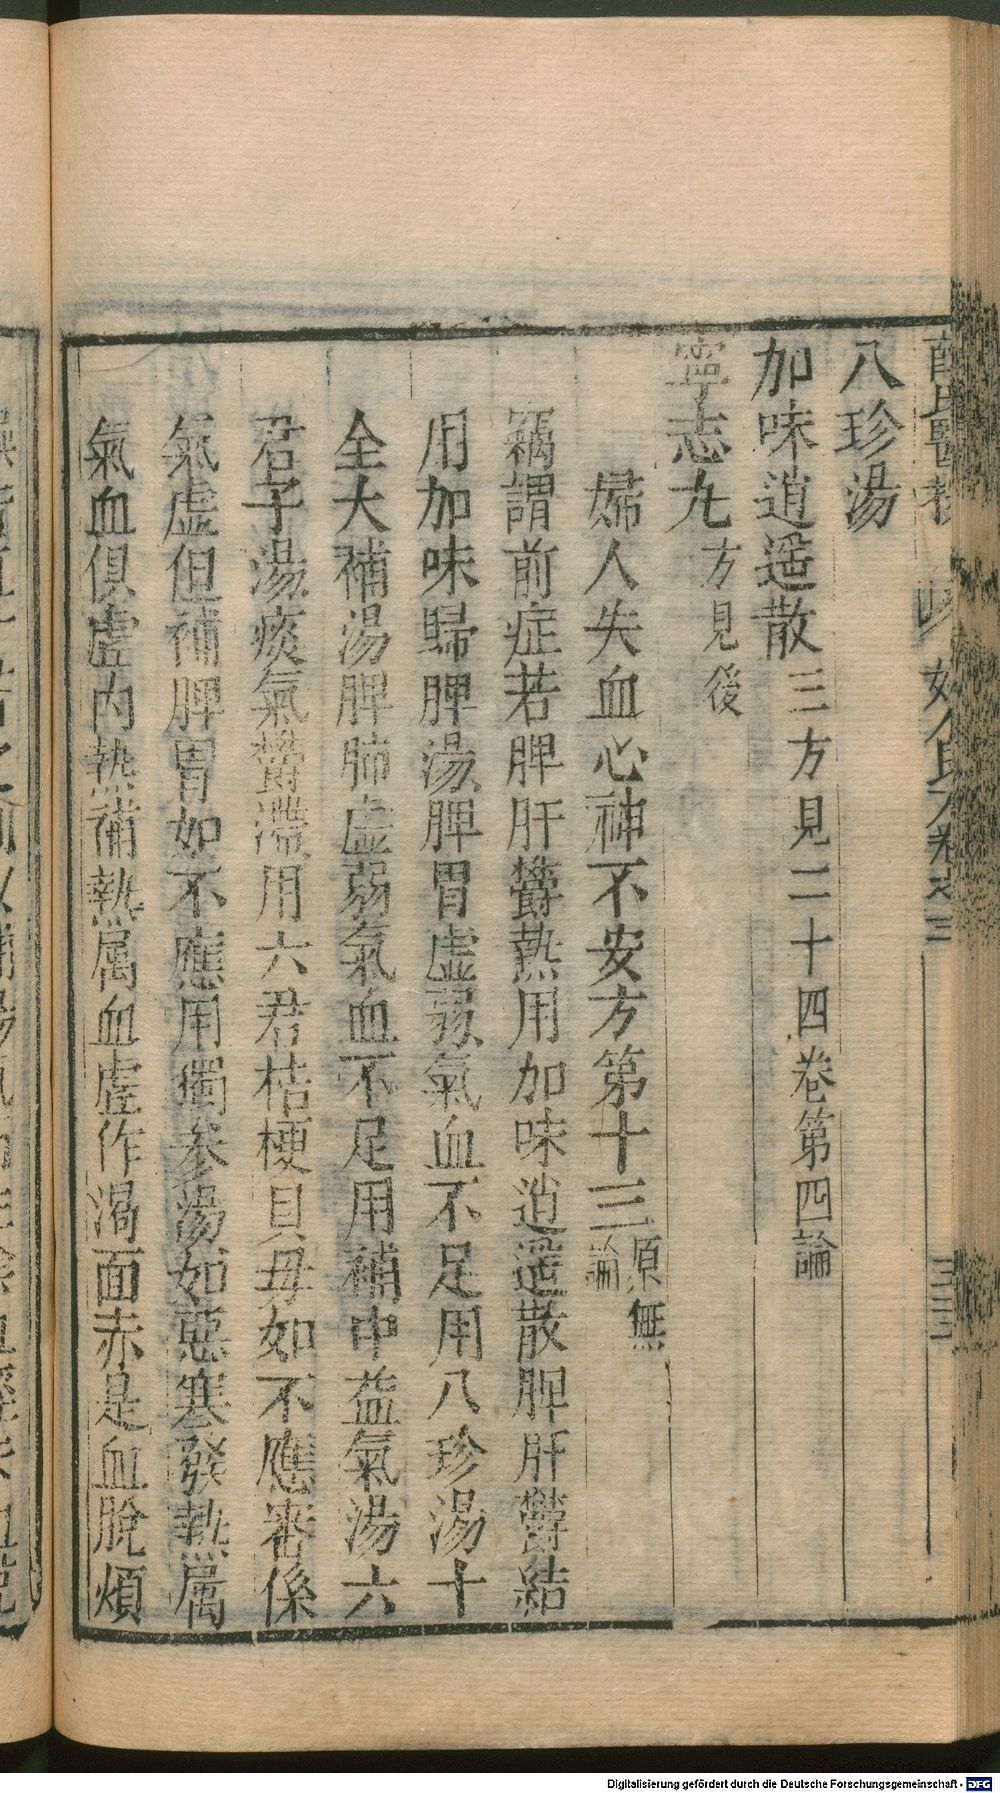 八珍湯
加味逍遥散三方見二十四卷第四論
寧志九方見後
婦人失血心神不安方第十三原無論
竊謂前症若脾肝欝熱用加味逍遥散脾肝欝結
用加味歸脾湯脾胃虚弱氣血不足用八珍湯十
全大補湯脾肺虚弱氣血不足用補中益氣湯六
君子湯痰氣欝滯用六君桔梗貝毋如不應審係
氣虚但補脾胃如不應用獨参湯如惡寒發熱属
氣血俱虚内熱補熱属血虚作渴面赤是血脫煩
Digitalisierung gefördert durch die Deutsche Forschungsgemeinschaft - DFG